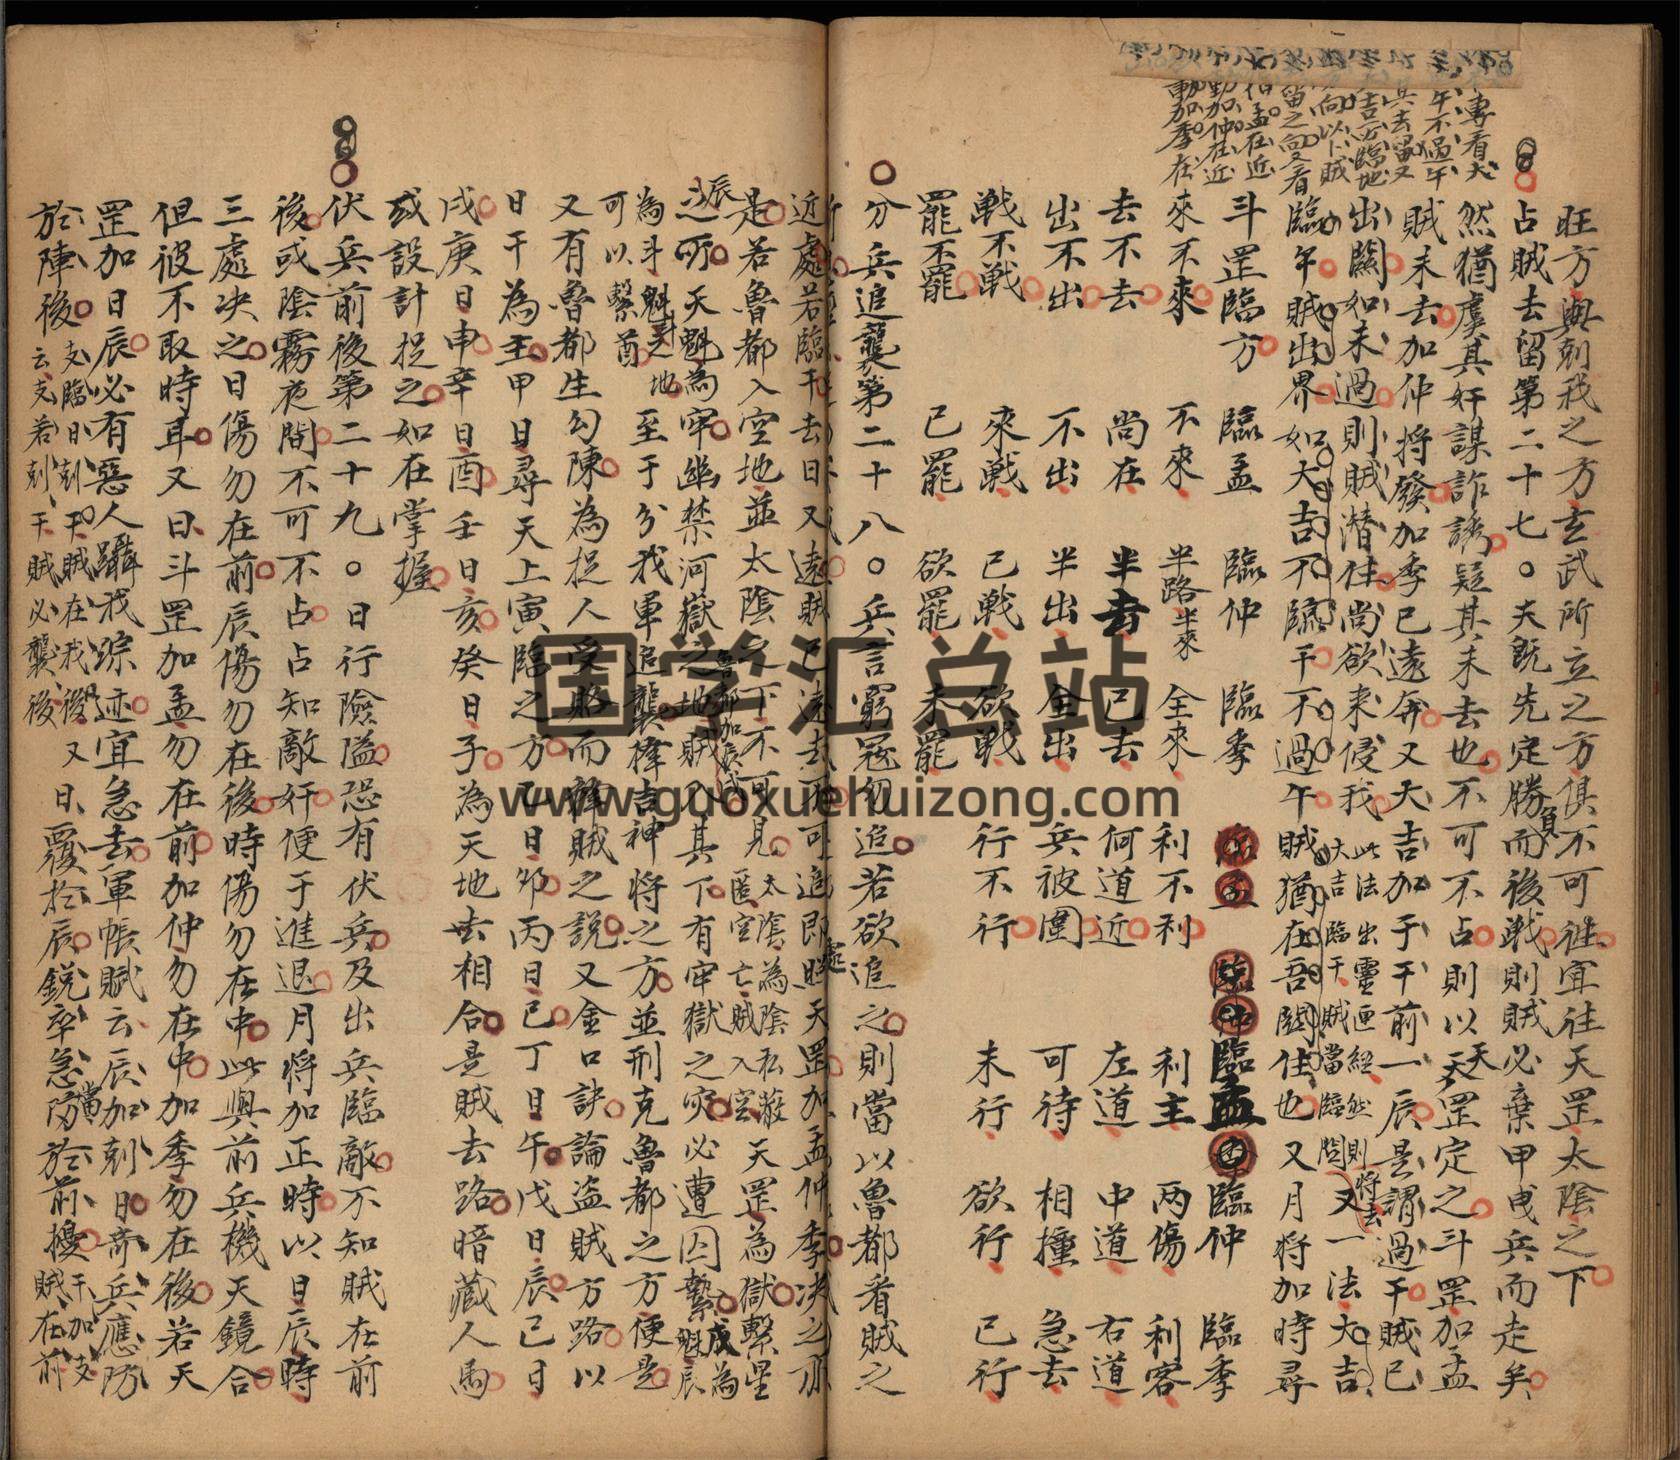 旺方與刺我之方玄武所立之方俱不可往宜往天罡太陰之下
占賊去留第二十七○夫既先定勝負而後戰則賊必棄甲曳兵而走矣
然猶虞其奸謀詐誘疑其未去也不可不占則以天罡定之斗罡加孟
賊未去加仲將發加季已遠奔又大吉加于干前一辰是謂過干賊已
出關如未過則賊潛住尚欲来侵我
此法出靈匣經然則將去
大吉臨干賊當臨關
又一法大吉
臨午賊出界如大吉不臨干不過午賊猶在吾關住也又月将加時尋
斗罡臨方 臨孟 臨仲 臨季 臨孟 臨仲 臨孟 臨仲 臨季
來不來 不來 半路半來 全來 利不利 利主 两傷 利客
去不去 尚在 半去 已去 何道近 左道 中道 右道
出不出 不出 半出 全出 兵被圍 可待 相撞 急去
戰不戰 來戰 已戰 欲戰 行不行 未行 欲行 已行
罷不罷 已罷 欲罷 未罷
分兵追襲第二十八○兵言窮寇勿追若欲追之則當以魯都看賊之
近處若臨干去日又遠賊已遠去不可追即處天罡加孟仲季决之亦
是若魯都入空地並太陰之下不可見
太陰為陰私蔽
匿空亡賊入空
天罡為獄繫星
辰之所天魁為牢幽禁河獄之地賊入其下有牢獄之灾必遭囚繫
魯都加辰戌
戌為魁辰
為斗魁斗之地
可以繫酋
至于分我軍追襲擇吉神將之方並刑克魯都之方便是
又有魯都生勾陳為捉人受賂而解賊之說又金口訣論盜賊方路以
日干為主甲日尋天上寅臨之方乙日卯丙日巳丁日午戊日辰己日
戌庚日申辛日酉壬日亥癸日子為天地去相合是賊去路暗藏人馬
或設計捉之如在掌握
伏兵前後第二十九○日行險隘恐有伏兵及出兵臨敵不知賊在前
後或陰霧夜間不可不占占知敵奸便于進退月將加正時以日辰時
三處决之日傷勿在前辰傷勿在後時傷勿在中此與前兵機天鏡合
但彼不取時耳又曰斗罡加孟勿在前加仲勿在中加季勿在後若天
罡加日辰必有惡人躡我踪迹宜急去軍帳賦云辰加刺日奇兵應防
於陣後
支臨日刺干賊在我後
云支若刺干賊必襲後
又曰覆於辰銳卒急當防於前擾
干加支
賊在前